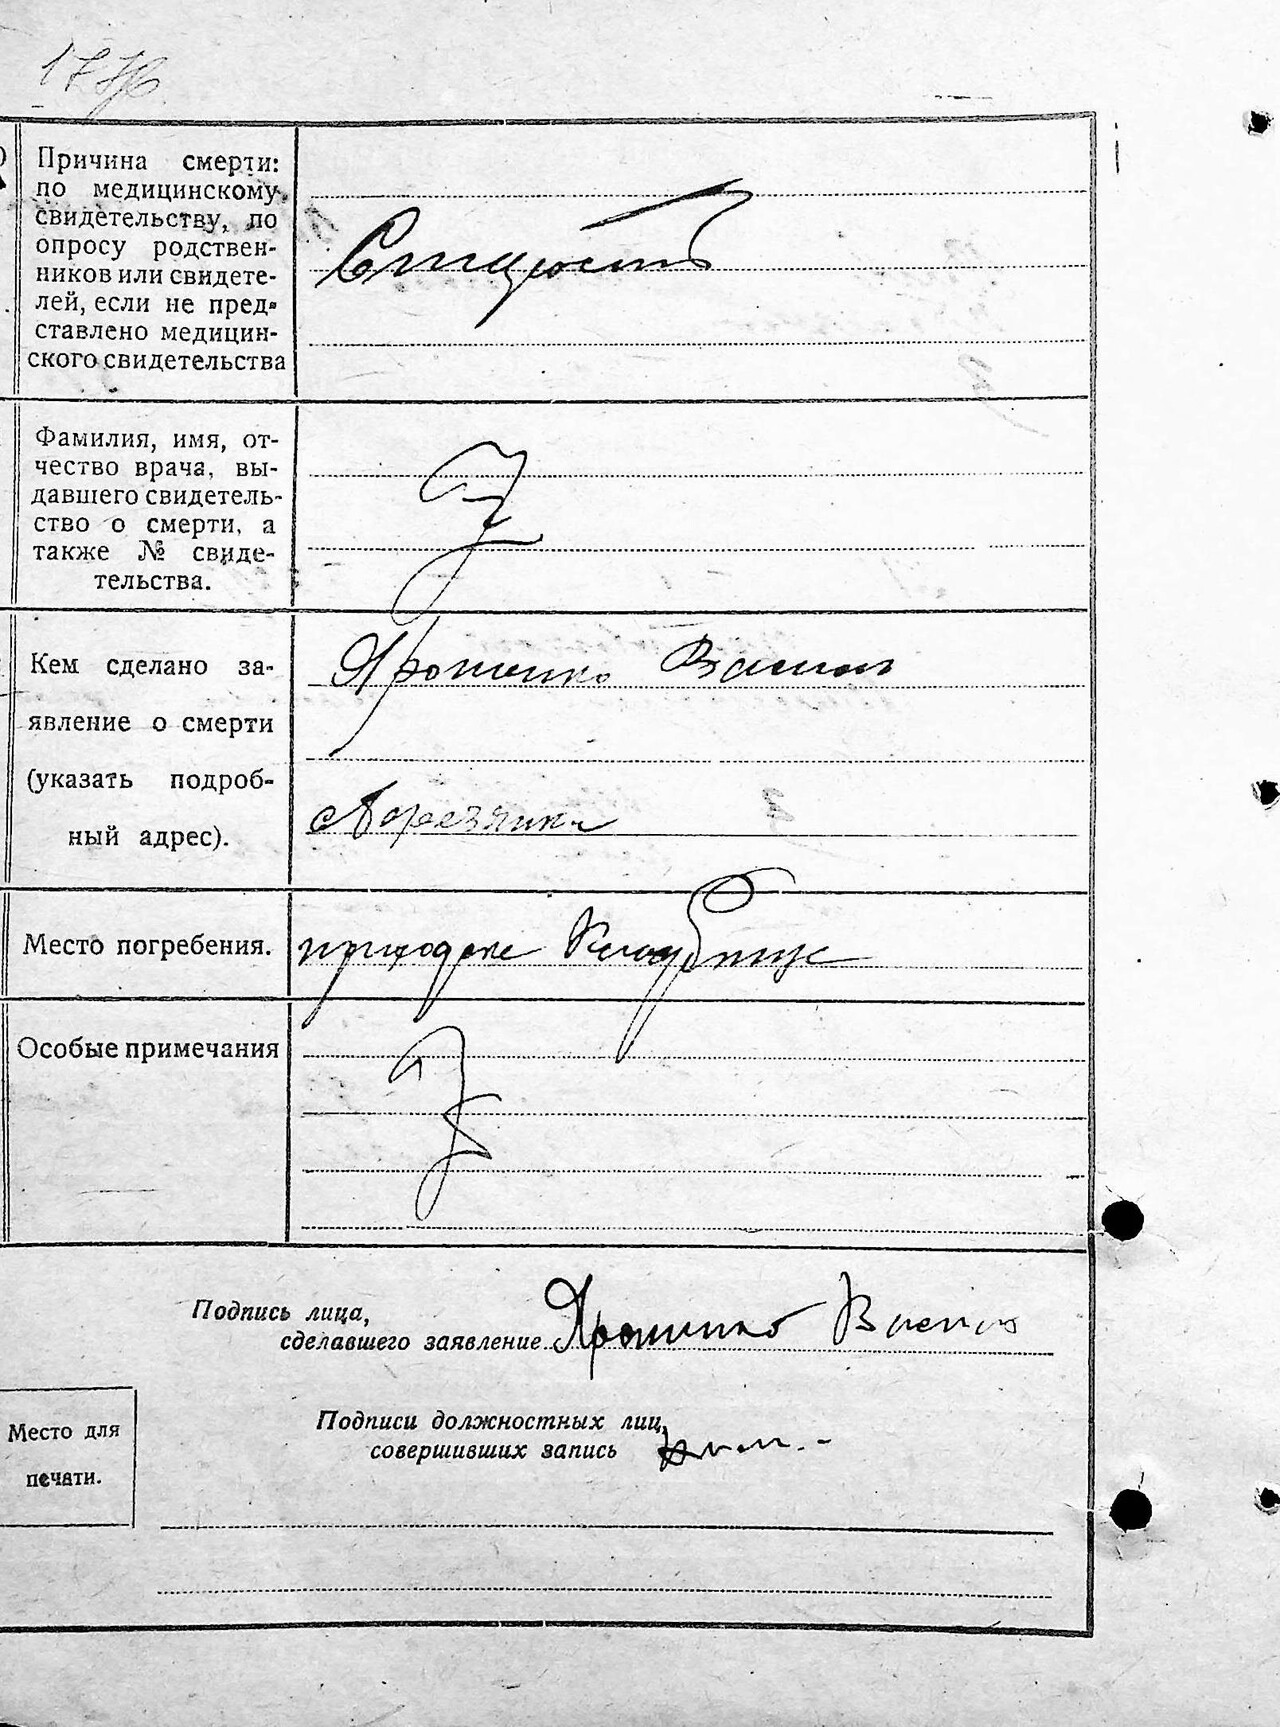 Причина смерти:
по медицинскому
свидетельству, по
опросу родствен-
ников или свидете-
лей, если не пред-
ставлено медицин-
ского свидетельства
Старость
Фамилия, имя, от-
чество врача, вы-
давшего свидетель-
ство о смерти, а
также № свиде-
тельства.
Кем сделано за-
явление о смерти
(указать подроб-
ный адрес).
Ярошенко Василь
Место погребения.
Особые примечания
Подпись лица,
сделавшего заявление Ярошенко Василь
Подписи должностных лиц,
совершивших запись
Место для
печати.